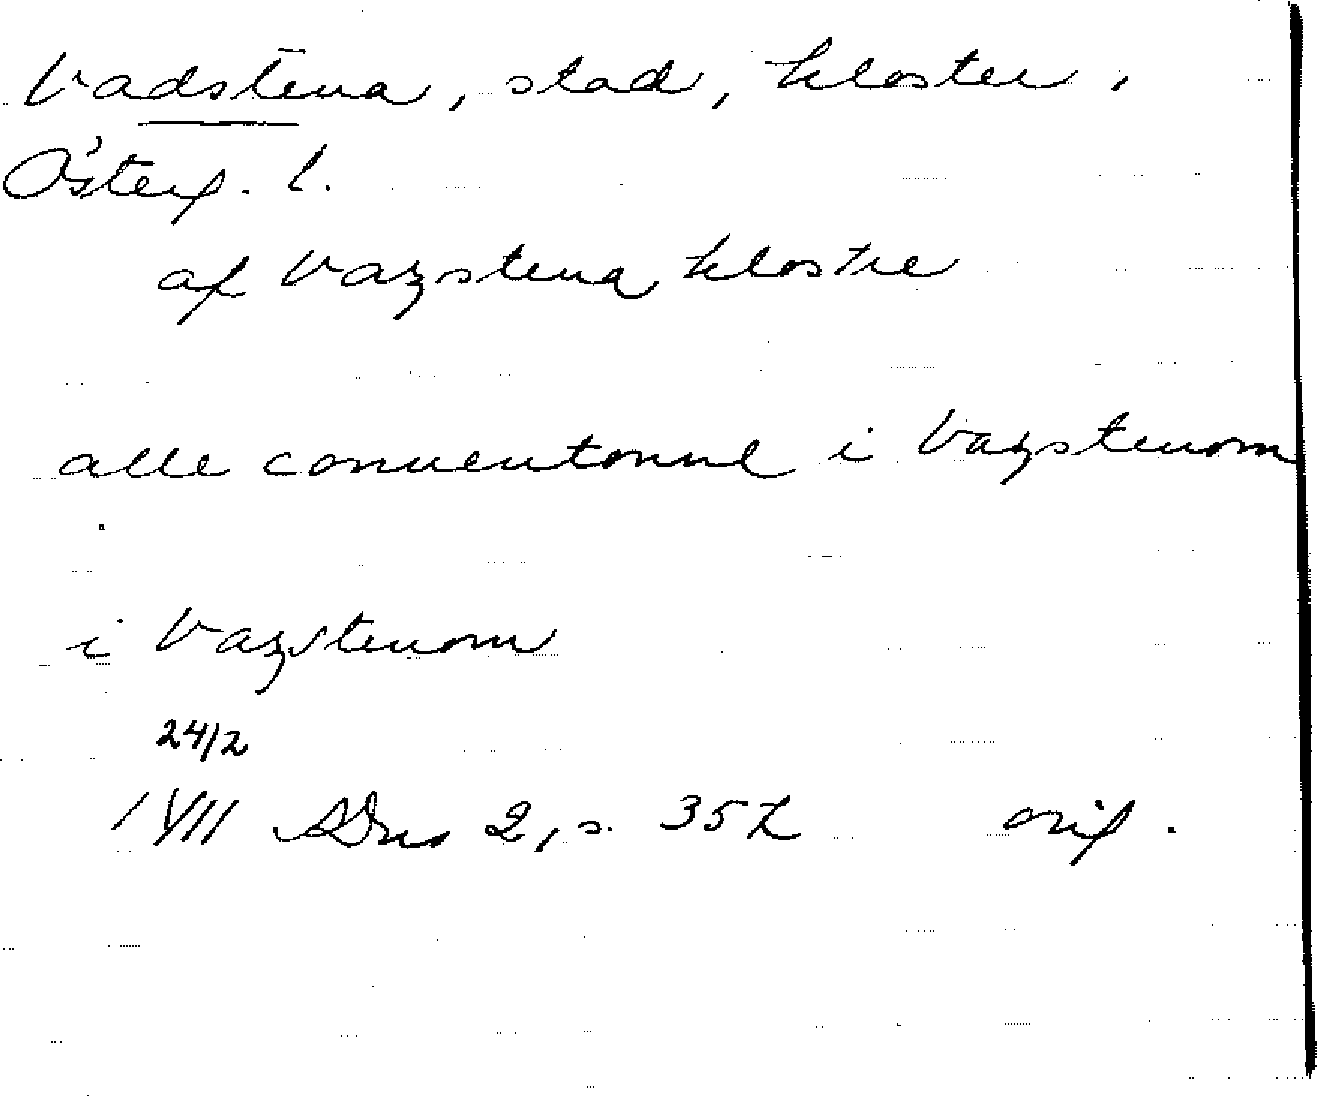 Vadstena, stad, kloster,
Österg. l.
af Vazstena klostre
alle conuentonne i Vazstenom
i Vazstenom
24/2
SDns 2, s. 352 orig.